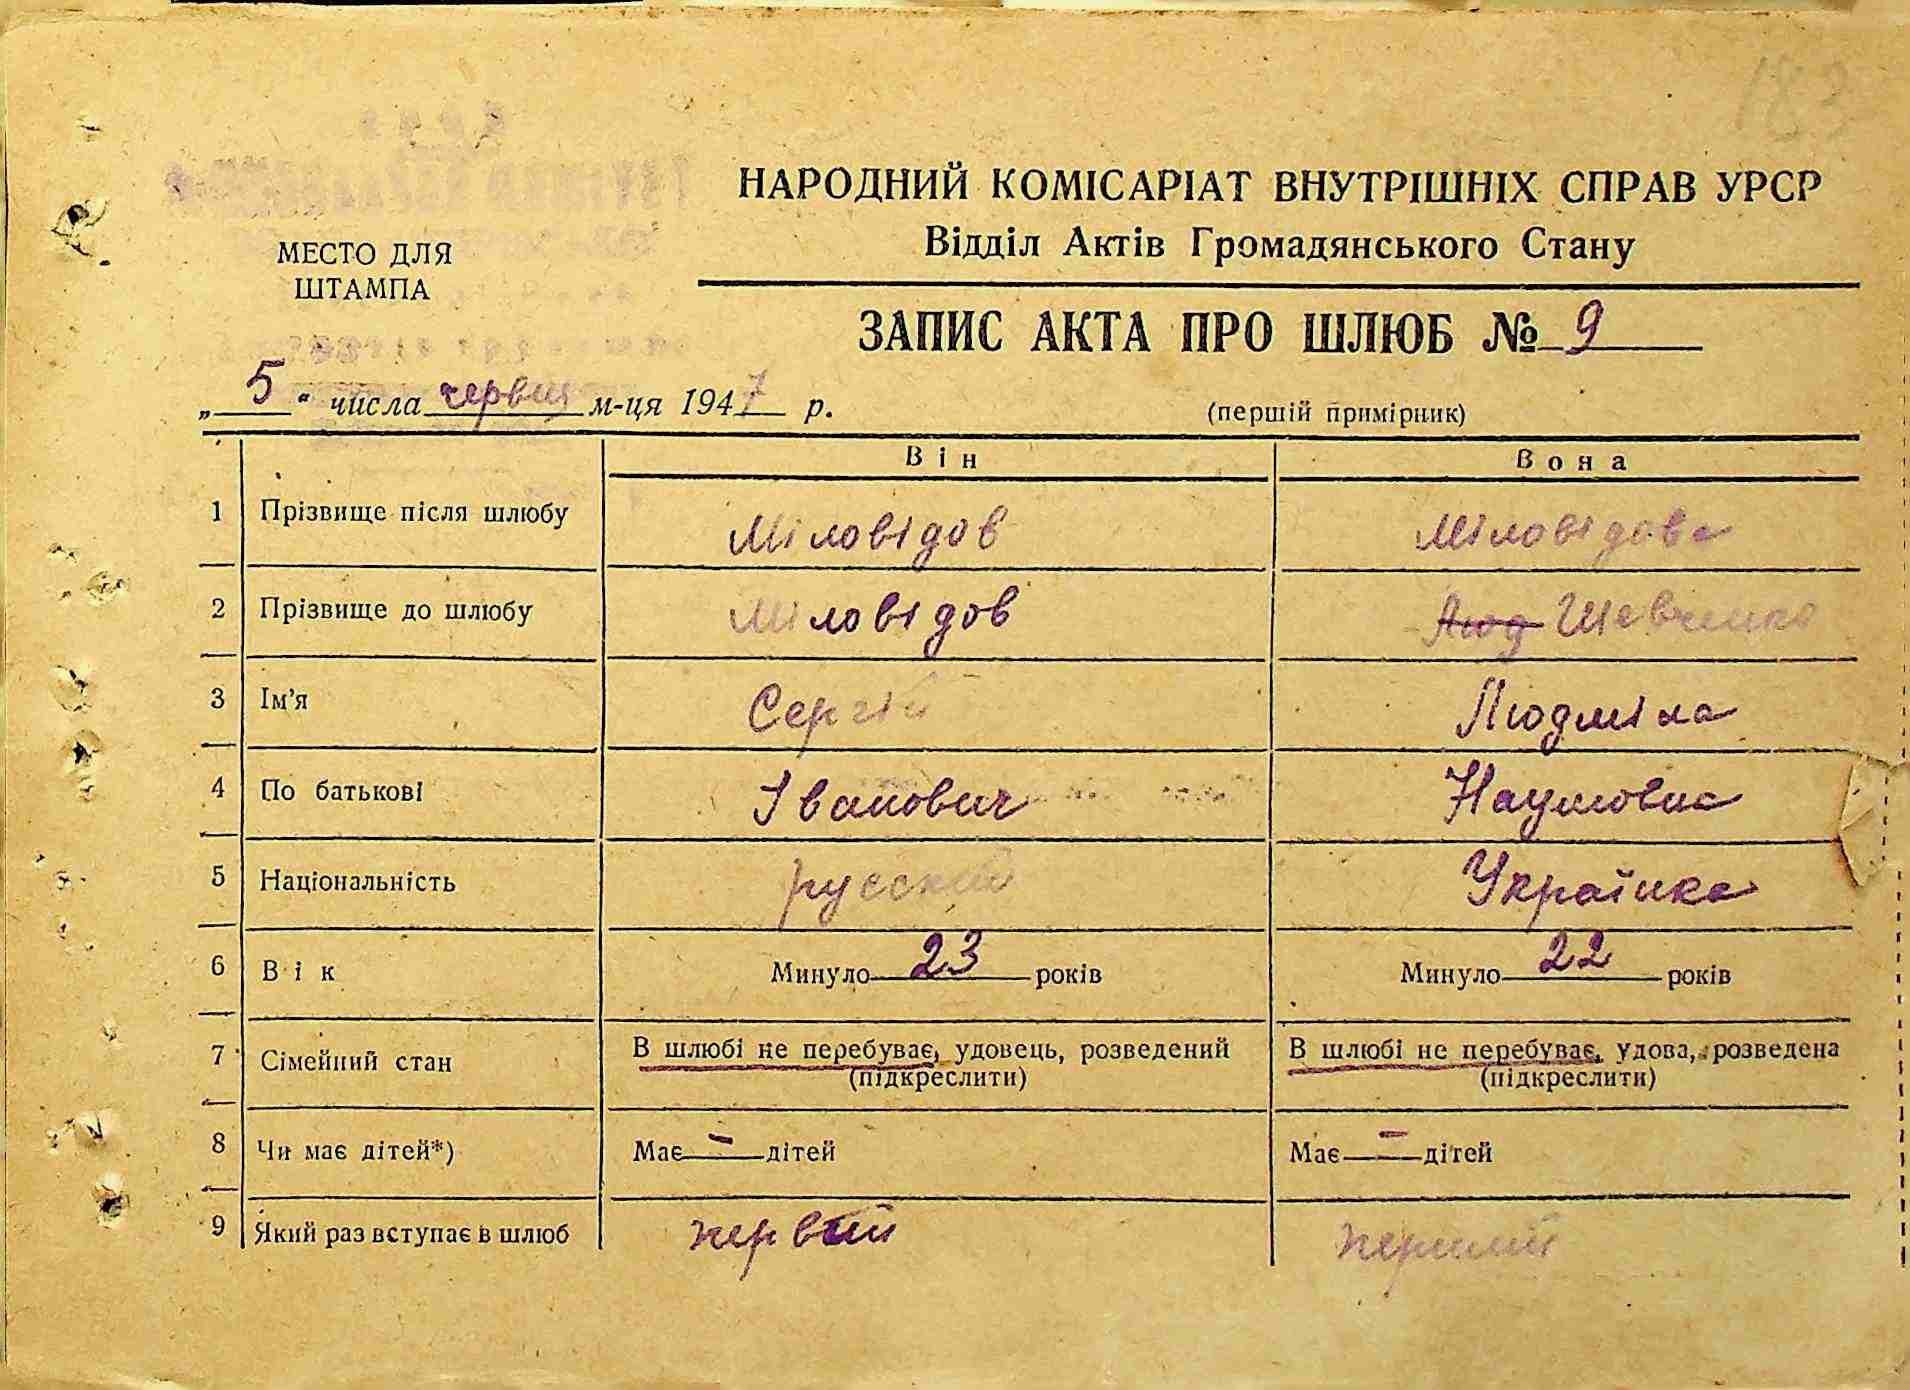 183
НАРОДНИЙ КОМІСАРІАТ ВНУТРІШНІХ СПРАВ УРСР
Відділ Актів Громадянського Стану
МЕСТО ДЛЯ
ШТАМПА
ЗАПИС АКТА ПРО ШЛЮБ № 9
„ 5 “ числа червня м-ця 1947 р.
(першій примірник)
Він Вона
1 Прізвище після шлюбу Міловідов Міловідова
2 Прізвище до шлюбу Міловідов Люд Шевченко
3 Ім'я Сергій Людміла
4 По батькові Іванович Наумовна
5 Національність русский Українка
6 Вік Минуло 23 років Минуло 22 років
7 Сімейний стан В шлюбі не перебуває, удовець, розведений В шлюбі не перебуває, удова, розведена
(підкреслити) (підкреслити)
8 Чи має дітей*) Має — дітей Має — дітей
9 Який раз вступає в шлюб первий перший